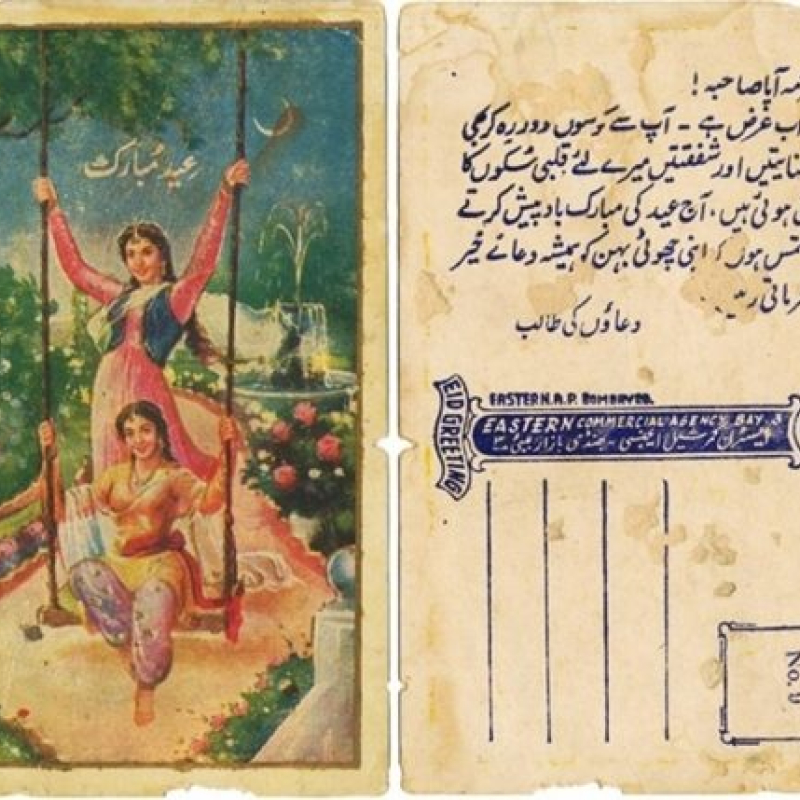 عید مُبارک
آپا صاحبہ !
غرض ہے - آپ سے کوسوں دور رہ کر بھی
اور شفقتیں میرے لئے قلبی سُکوں کا
ہوئی ہیں ، آج عید کی مبارک باد پیش کرتے
ہوں کہ اپنی چھوٹی بہن کو ہمیشہ دعائے خیر
دعاؤں کی طالب
EASTERN.A.P. BOMBAY
EID GREETING
EASTERN COMMERCIAL AGENCY BAY. 3
ایسٹرن کمرشیل ایجنسی - بھنڈی بازار بمبئی ۳
No. 9